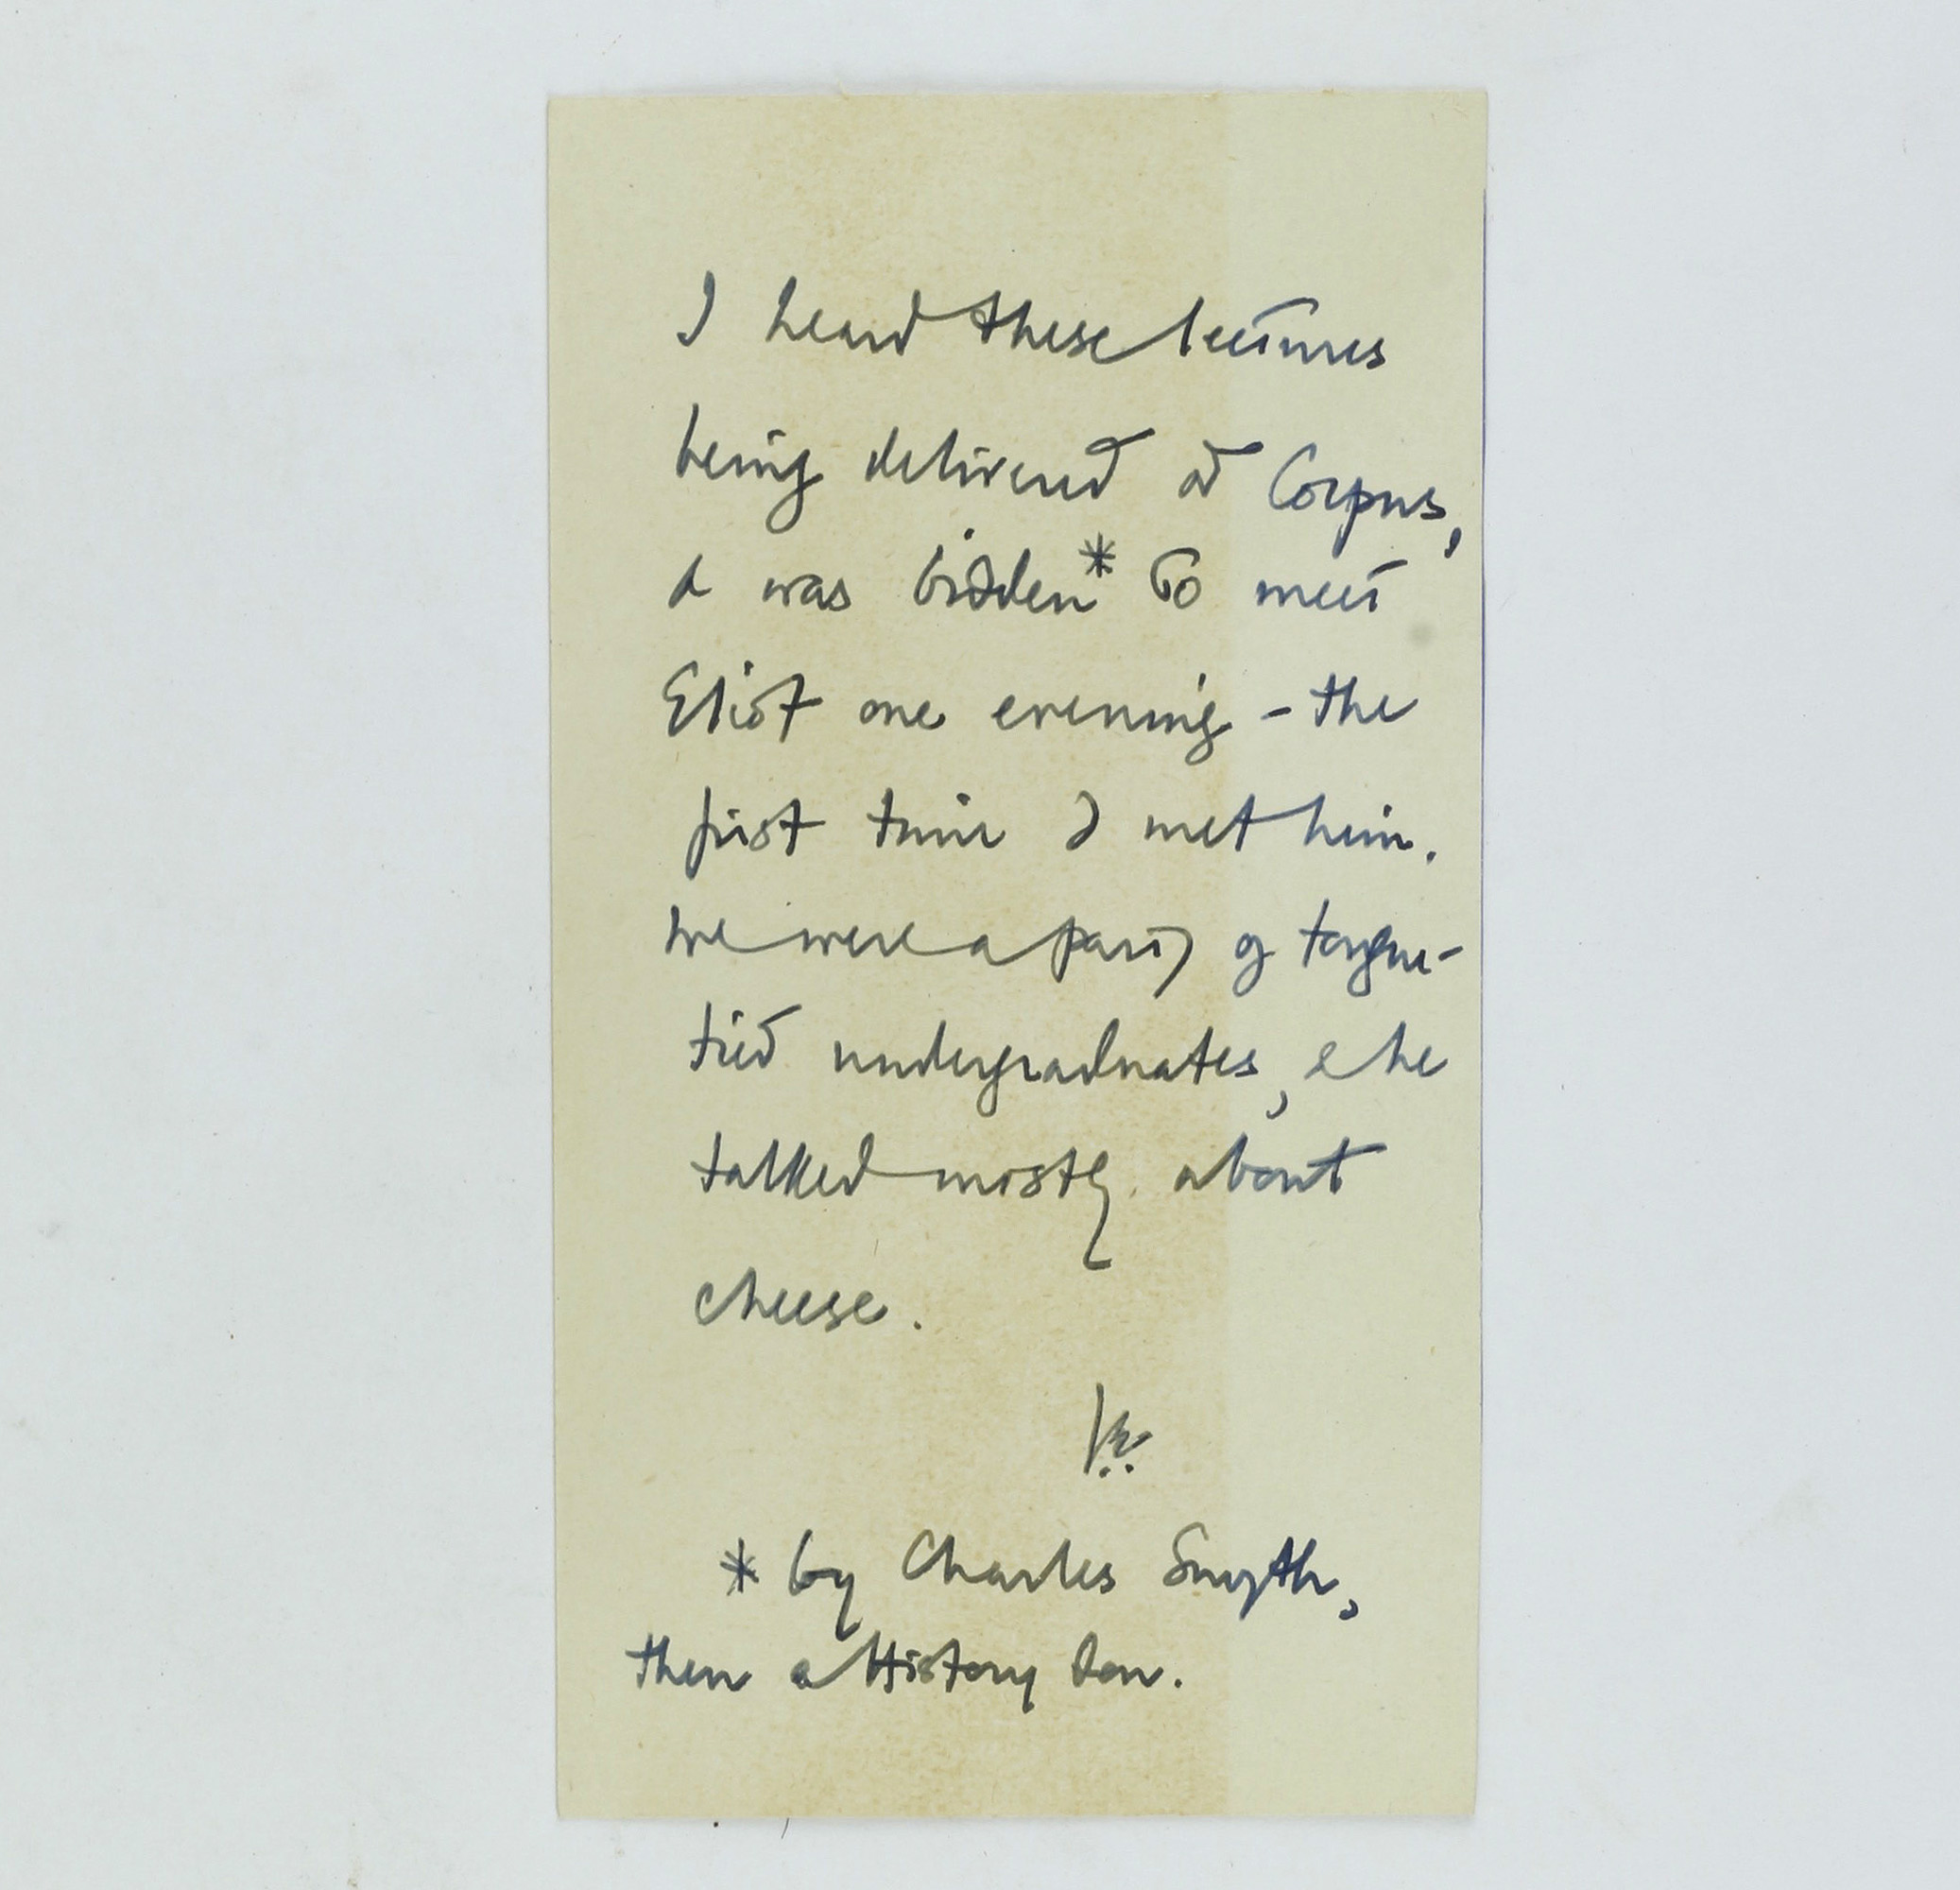 I heard these lectures
being delivered at Corpus,
& was bidden* to meet
Eliot one evening – the
first time I met him.
We were a party of tongue-
tied undergraduates, & he
talked mostly about
cheese.
* by Charles Smyth,
then a History don.